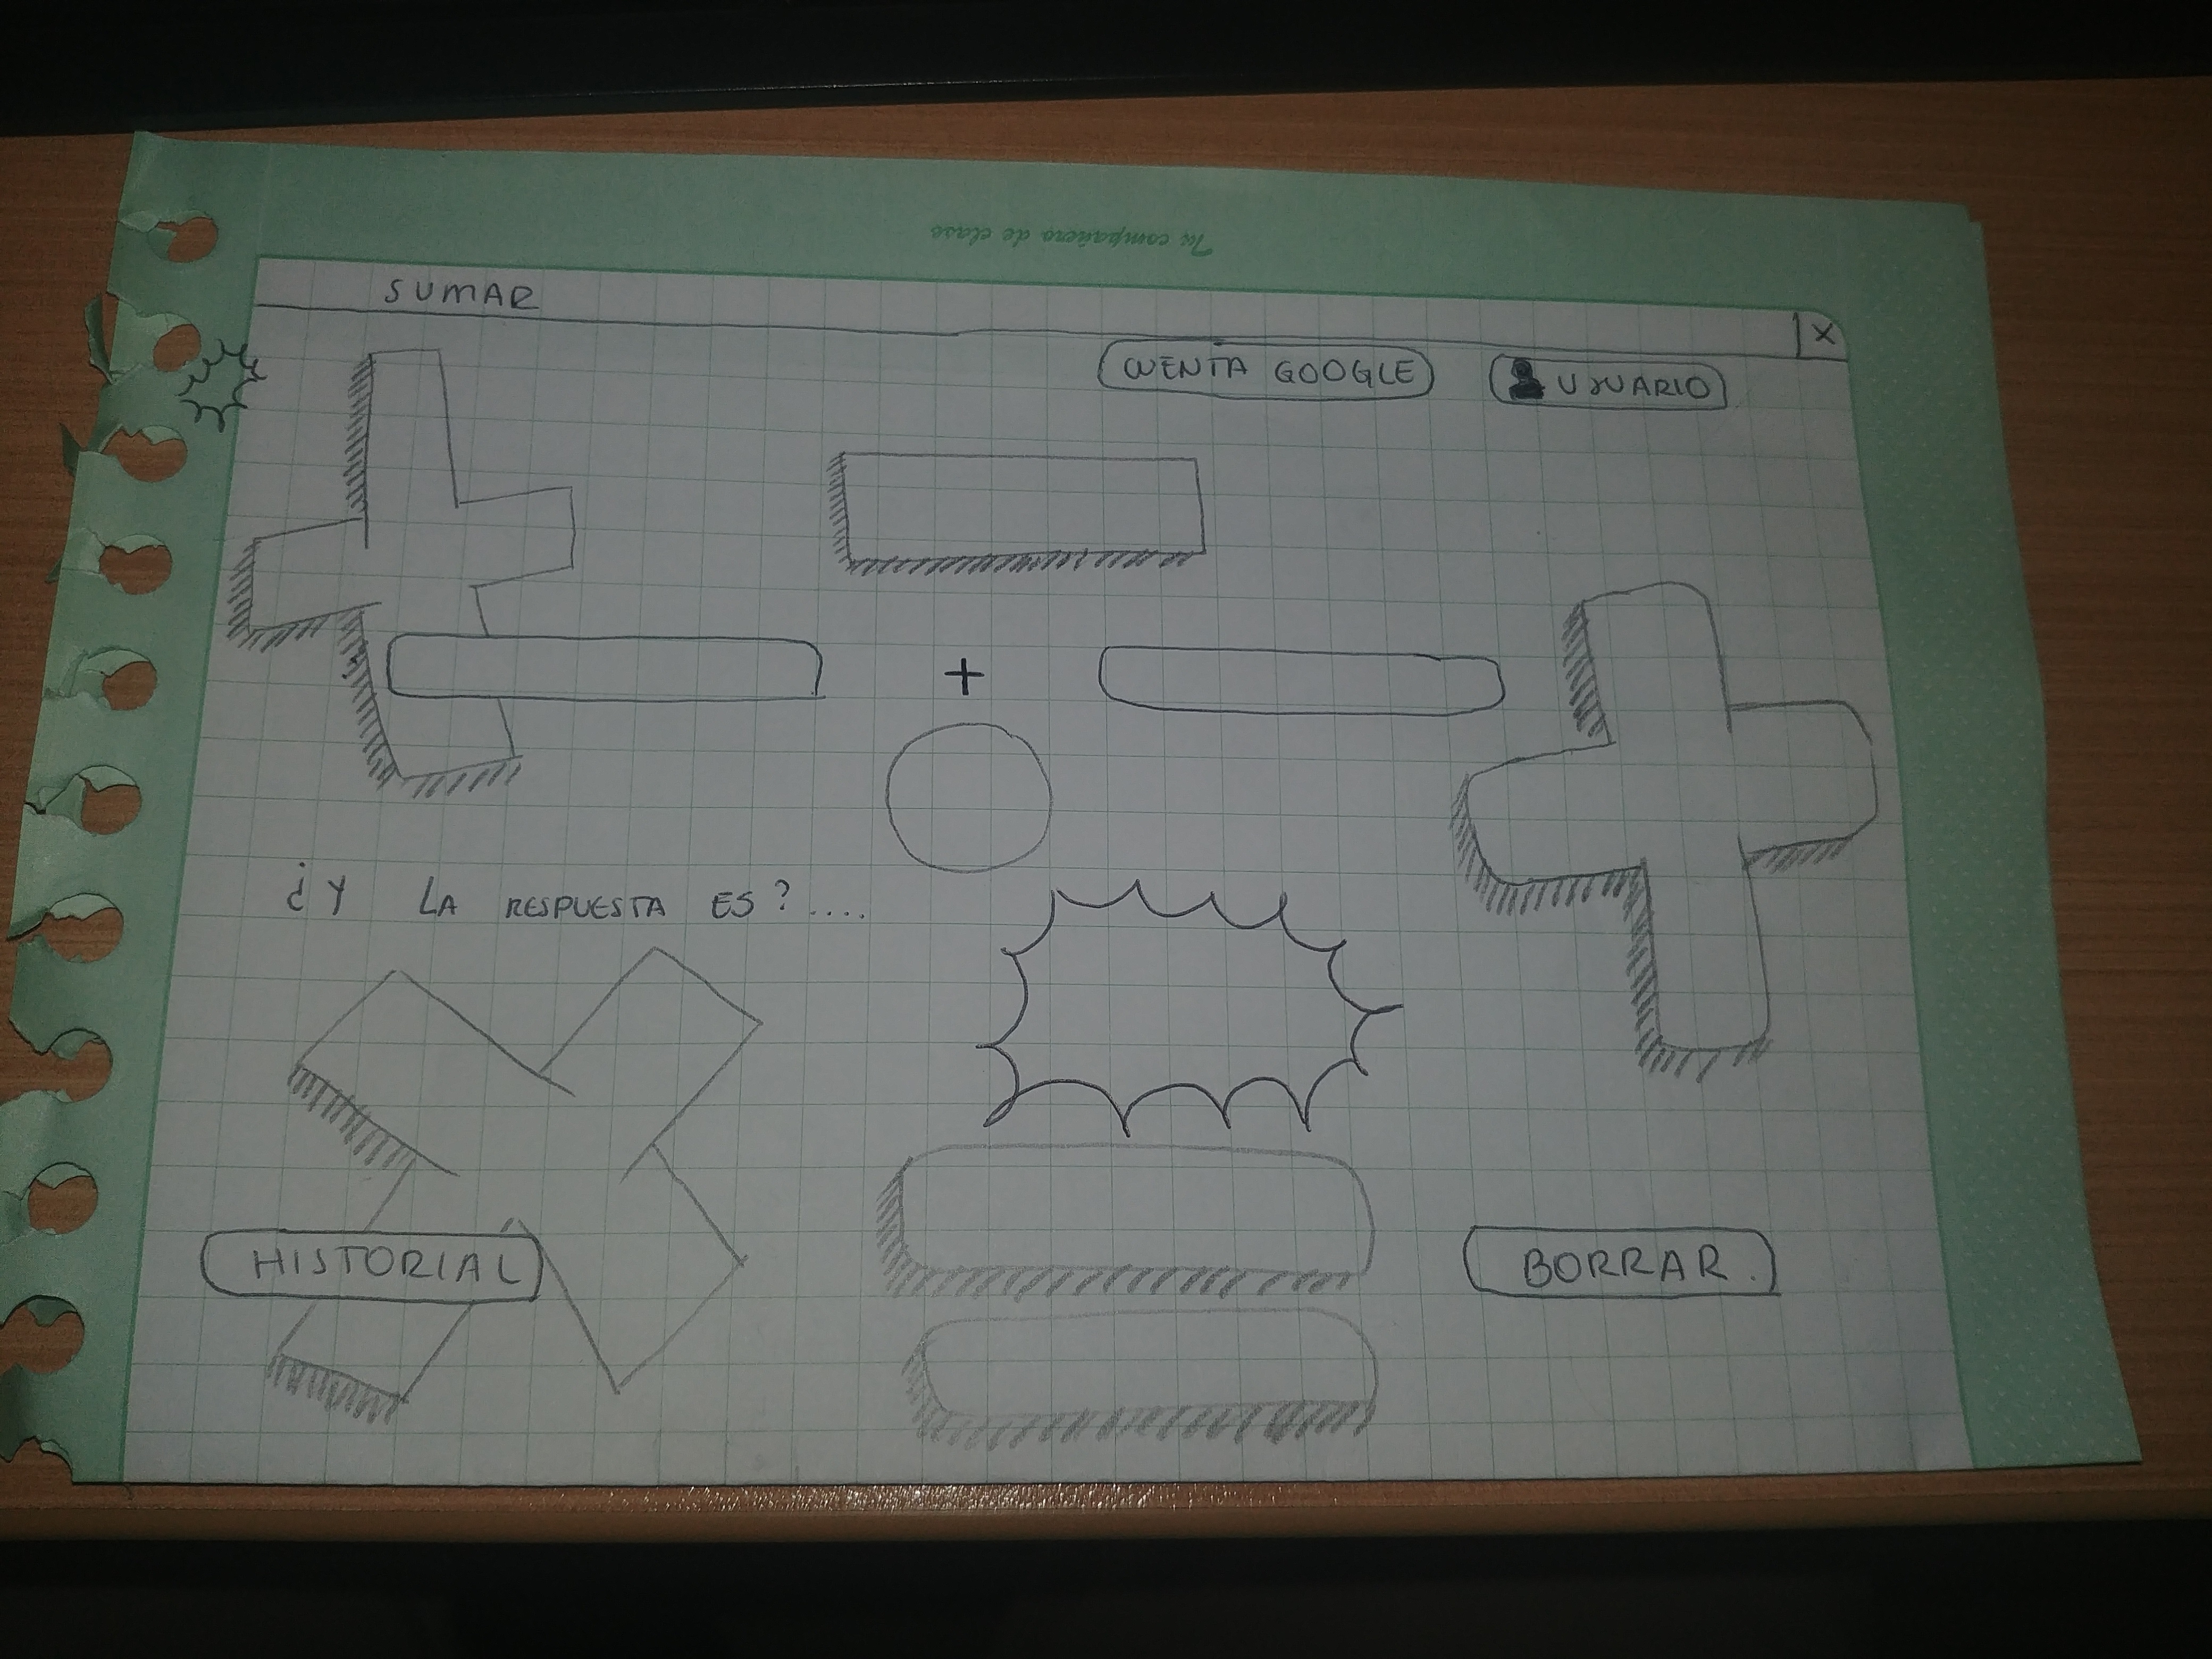 Tu compañero de clase
SUMAR
X
CUENTA GOOGLE
USUARIO
+
¿Y LA RESPUESTA ES?....
HISTORIAL
BORRAR.